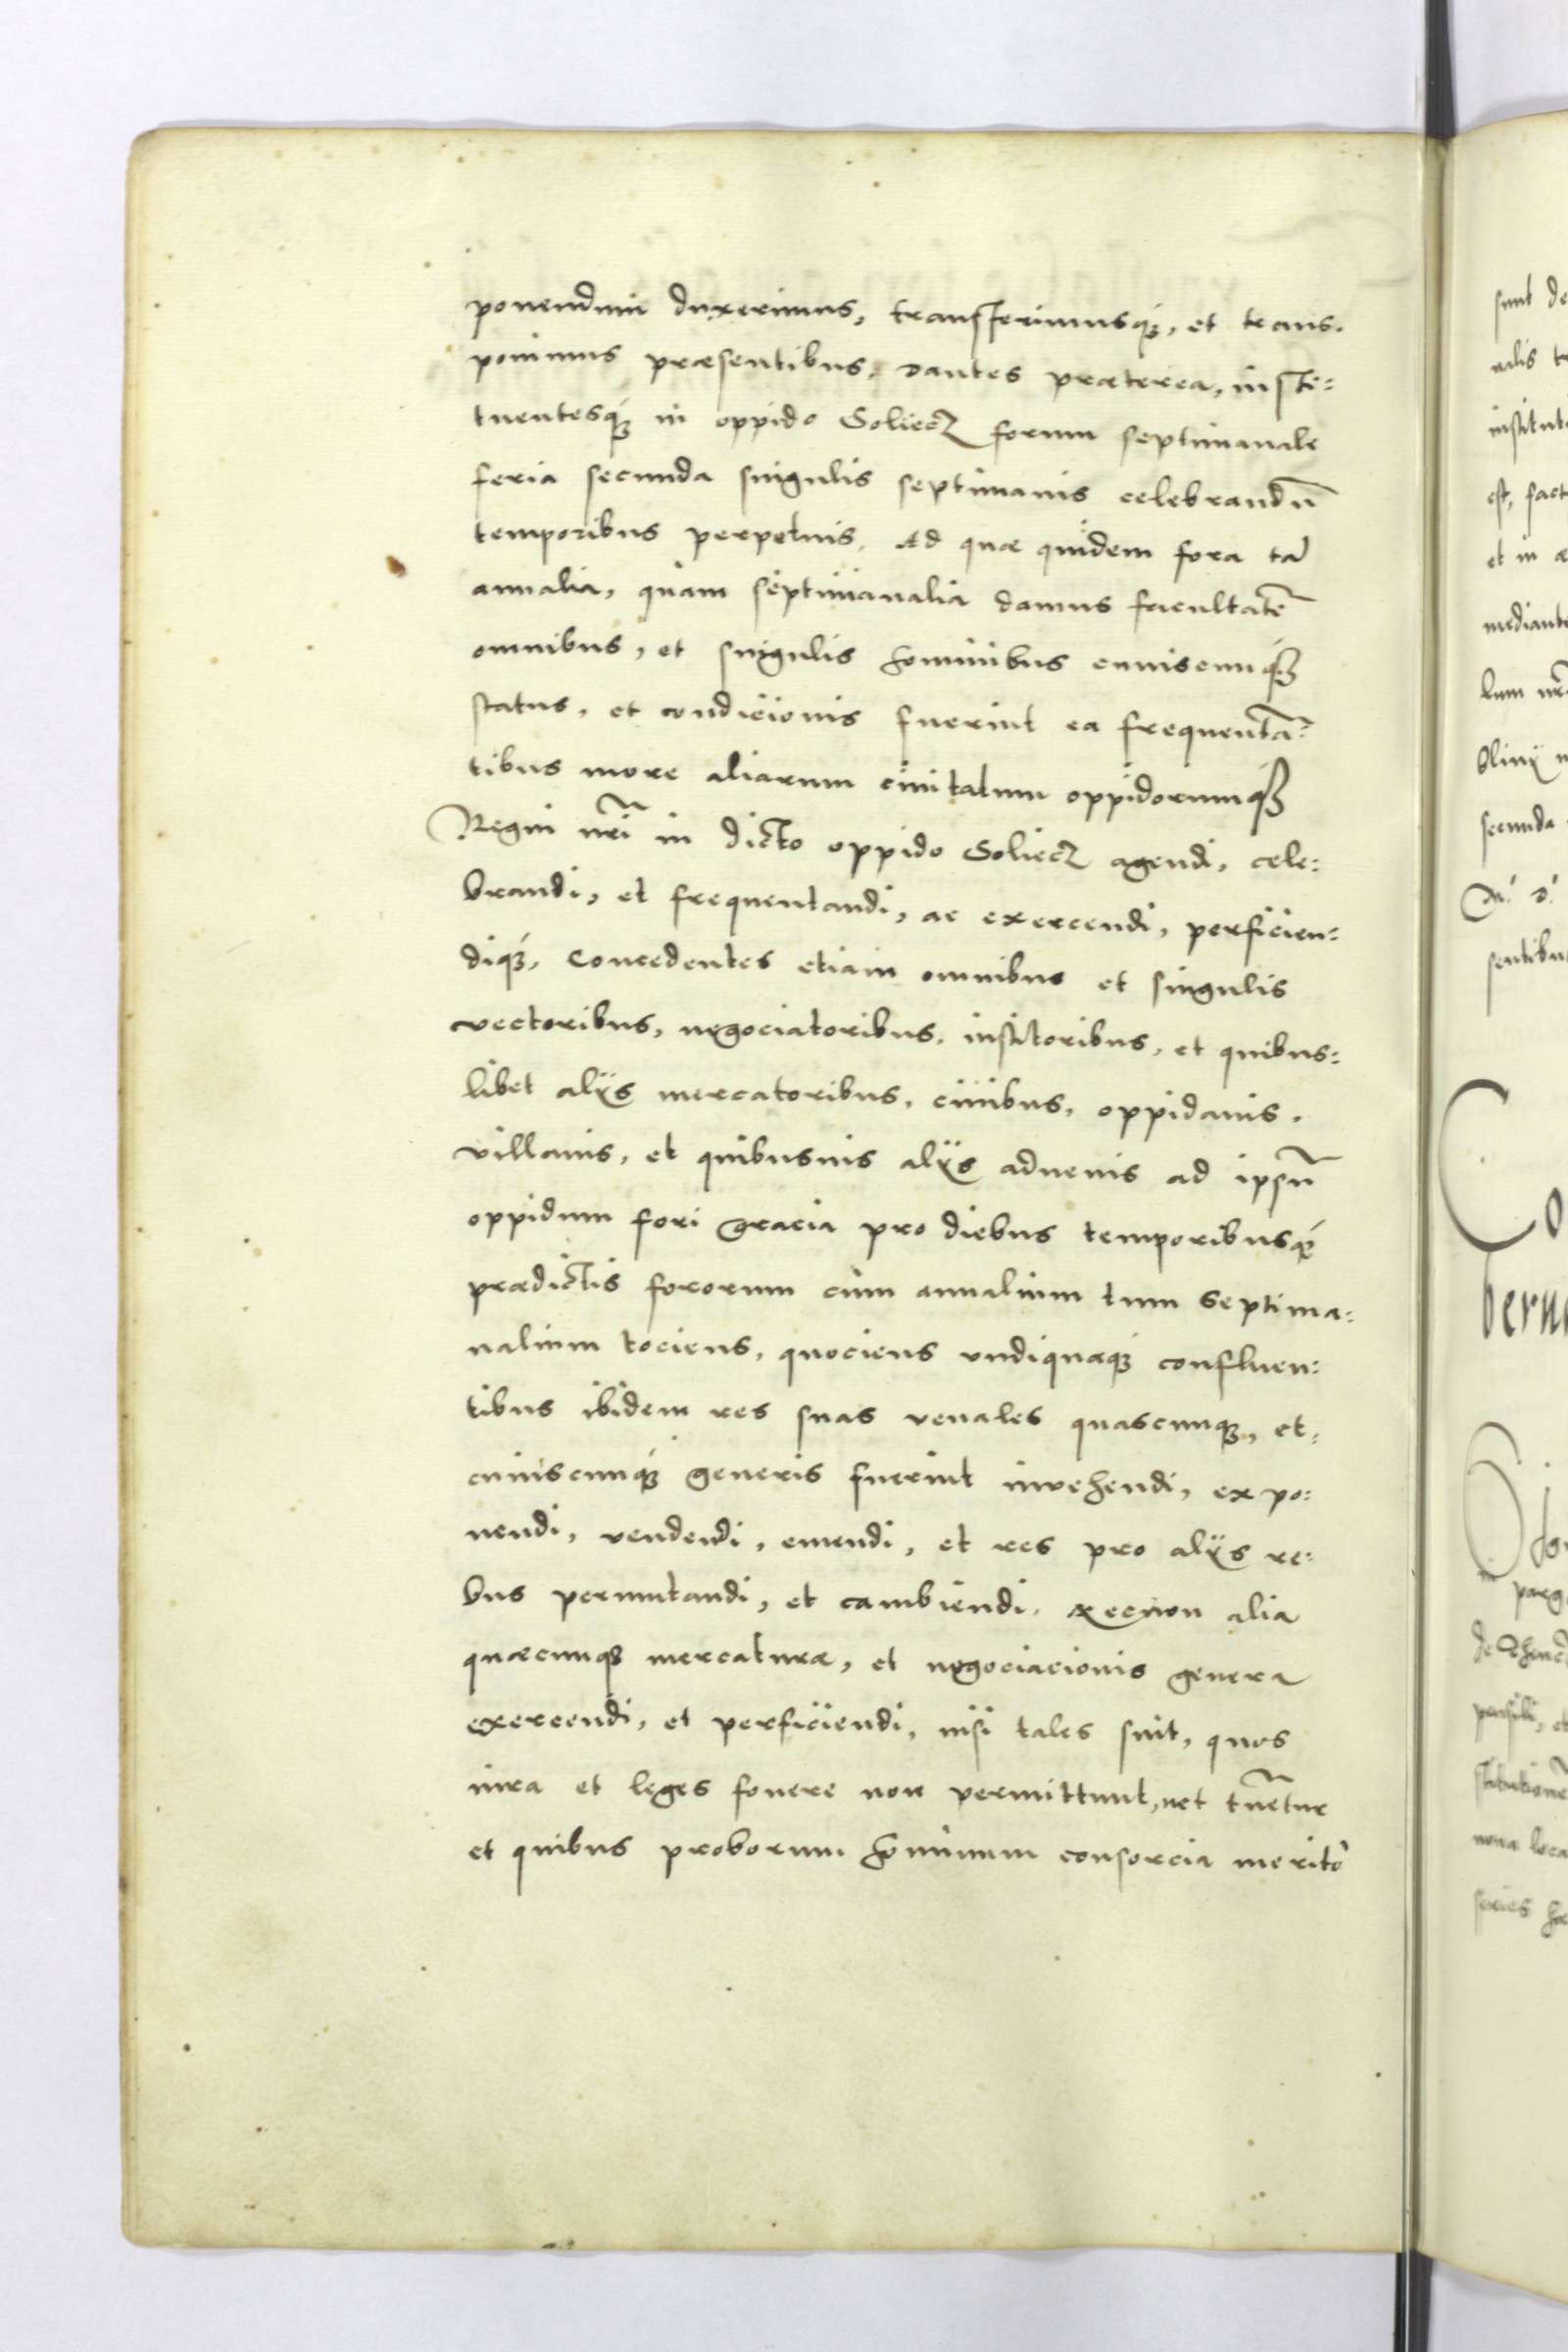 ponendum duxerimus, transferimusq́ꝫ, et trans.
ponimus præsentibus. Dantes præterea, insti:
tuentesq́ꝫ in oppido Soliecz forum septimanale
feria secunda singulis septimanis celebrandū
temporibus perpetuis. Ad quæ quidem fora tā
annalia, quàm septimanalia damus facultatē
omnibus, et singulis hominibus cuiuscunq́ꝫ
status, et condicionis fuerint ea frequentā:
tibus more aliarum ciuitatum oppidorumq́ꝫ
Regni nr̃i in dicto oppido Soliecz agendi, cele:
brandi, et frequentandi, ac exercendi, perficien:
diq́ꝫ. Concedentes etiam omnibus et singulis
vectoribus, negociatoribus, institoribus, et quibus:
libet alijs mercatoribus, ciuibus, oppidanis,
villanis, et quibusuis alijs aduenis ad ipsū
oppidum fori gracia pro diebus temporibusq́ꝫ
prædictis fororum cùm annalium tum septima:
nalium tociens, quociens vndiquaq́ꝫ confluen:
tibus ibidem res suas venales quascunqꝫ, et
cuiuscunq́ꝫ generis fuerint inuehendi, expo:
nendi, vendendi, emendi, et res pro alijs re:
bus permutandi, et cambiendi. Necnon alia
quæcunqꝫ mercaturæ, et negociacionis genera
exercendi, et perficiendi, nisi tales sint, quos
iura et leges fouere non permittunt, nec tuētur
et quibus proborum hominum consorcia meritò